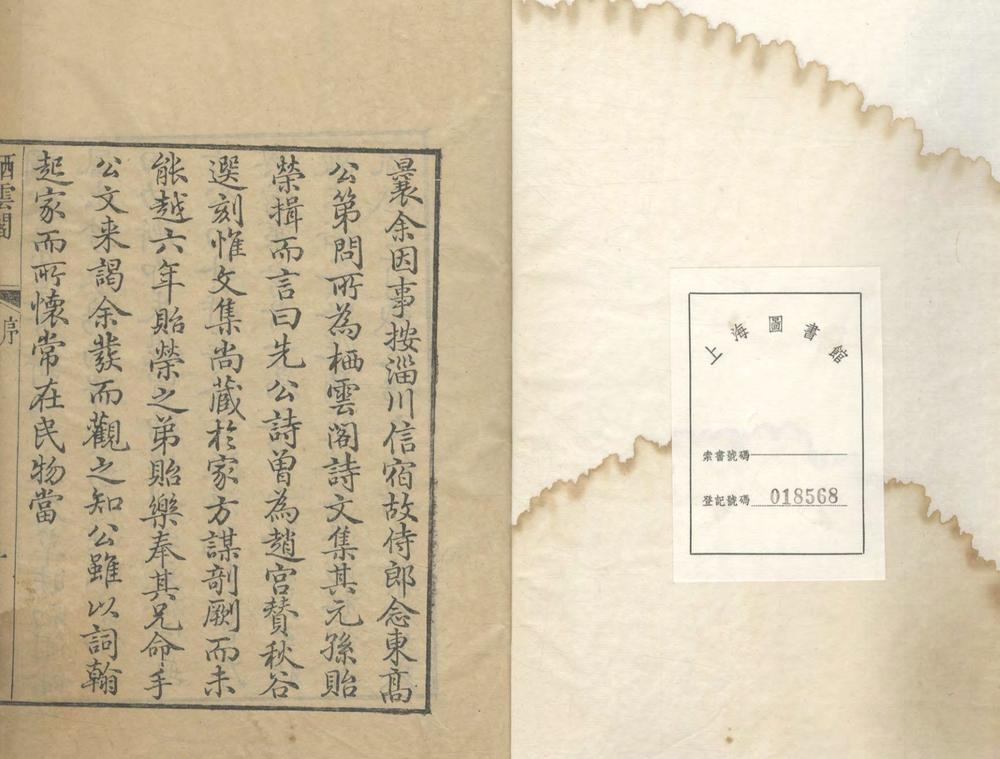 上海圖書館
索書號碼
登記號碼 018568
曩余因事按淄川信宿故侍郎念東高
公第問所為栖雲閣詩文集其元孫貽
榮揖而言曰先公詩曾為趙宮贊秋谷
選刻惟文集尚藏於家方謀剞劂而未
能越六年貽榮之弟貽樂奉其兄命手
公文来謁余發而觀之知公雖以詞翰
起家而所懷常在民物當
栖雲閣
序
一